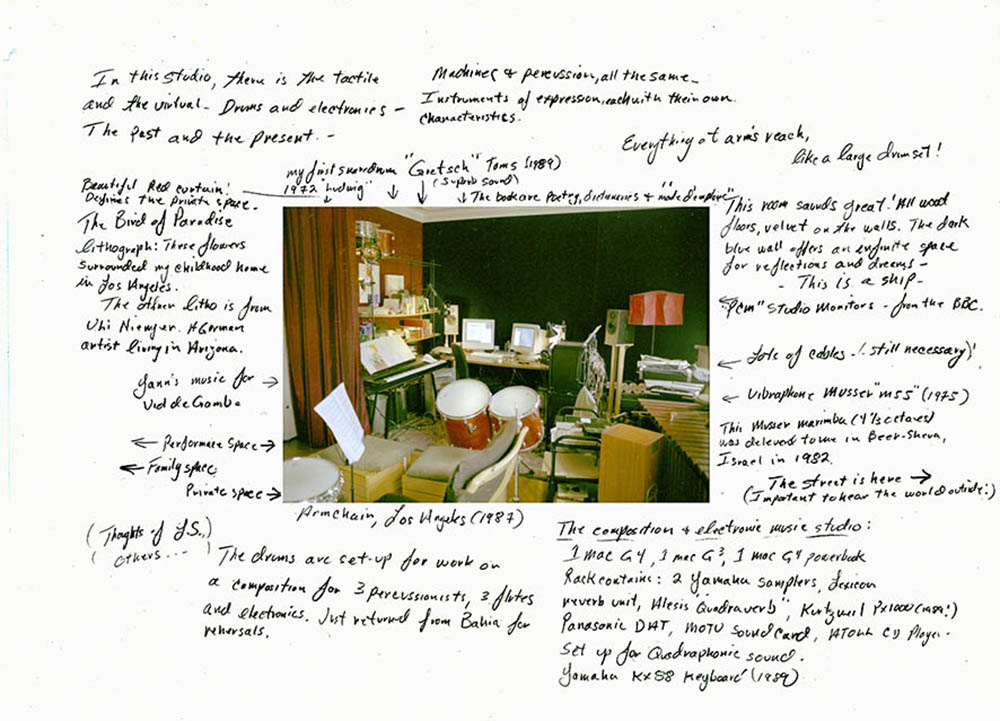 In this studio, there is the tactile
and the virtual - Drums and electronics -
The past and the present. -
Machines & percussion, all the same -
Instruments of expression, each with their own
characteristics.
Everything at arm's reach,
like a large drumset!
my first snaredrum
1972 "Ludwig"
"Gretsch" Toms (1989)
(Superb sound)
The book are Poetry, dictionaries & "mode d'emploie"
Beautiful Red curtain!
Defines the private space -
The Bird of Paradise
lithograph: These flowers
surrounded my childhood home
in Los Angeles.
The other litho is from
Uhi Niemyer. A German
artist living in Arizona.
Yann's music for
Viol de Gambe
Performere Space
Family space
Private space
This room sounds great! All wood
floors, velvet on the walls. The dark
blue wall offers an infinite space
for reflections and dreams -
- This is a ship -
"Pcm" Studio Monitors - from the BBC.
Lots of cables - (still necessary)!
Vibraphone Musser "M55" (1975)
This Musser marimba (4 1/3 octaves)
was delevered to me in Beer-Sheva,
Israel in 1982.
The street is here
(Important to hear the world outside!)
Armchair, Los Angeles (1987)
(Thoghts of J.S.,)
(others...)
The drums are set-up for work on
a composition for 3 percussionists, 3 flutes
and electronics. Just returned from Bahia for
rehersals.
The composition & electronic music studio:
1 mac G4, 1 mac G3, 1 mac G4 powerbook
Rack contains: 2 Yamaha samplers, Lexicon
reverb unit, Alesis "Quadraverb", Kurtzweil Px1000 (1989!)
Panasonic DAT, MOTU Sound card, CD Player -
Set up for Quadraphonic sound.
Yamaha KX88 Keyboard (1989)